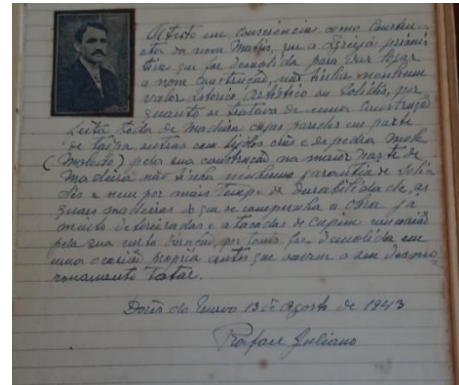 Atesto em consciência como Constru-
ctor da nova Matriz, que a Igreja primi-
tiva que foi demolida para dar lugar
a nova Construção, não tinha nenhum
valor historico, artistico ou solido, por
quanto se tratava de uma Construção
feita toda de Madeira cujas paredes em parte
de taipa outras com tijolos crús e de pedra mole
pela sua construção na maior parte de
Madeira não tinha nenhuma garantia de soli
dês e nem por mais Tempo de durabilidade, as
quaes madeiras que se compunha a obra já
muito deterioradas e atacadas de cupim
pela sua foi demolida em
uma ocasião propria antes que o seu desmo
ronamento total.
Dores do 13 de Agosto de 1943
Rafael Juliano